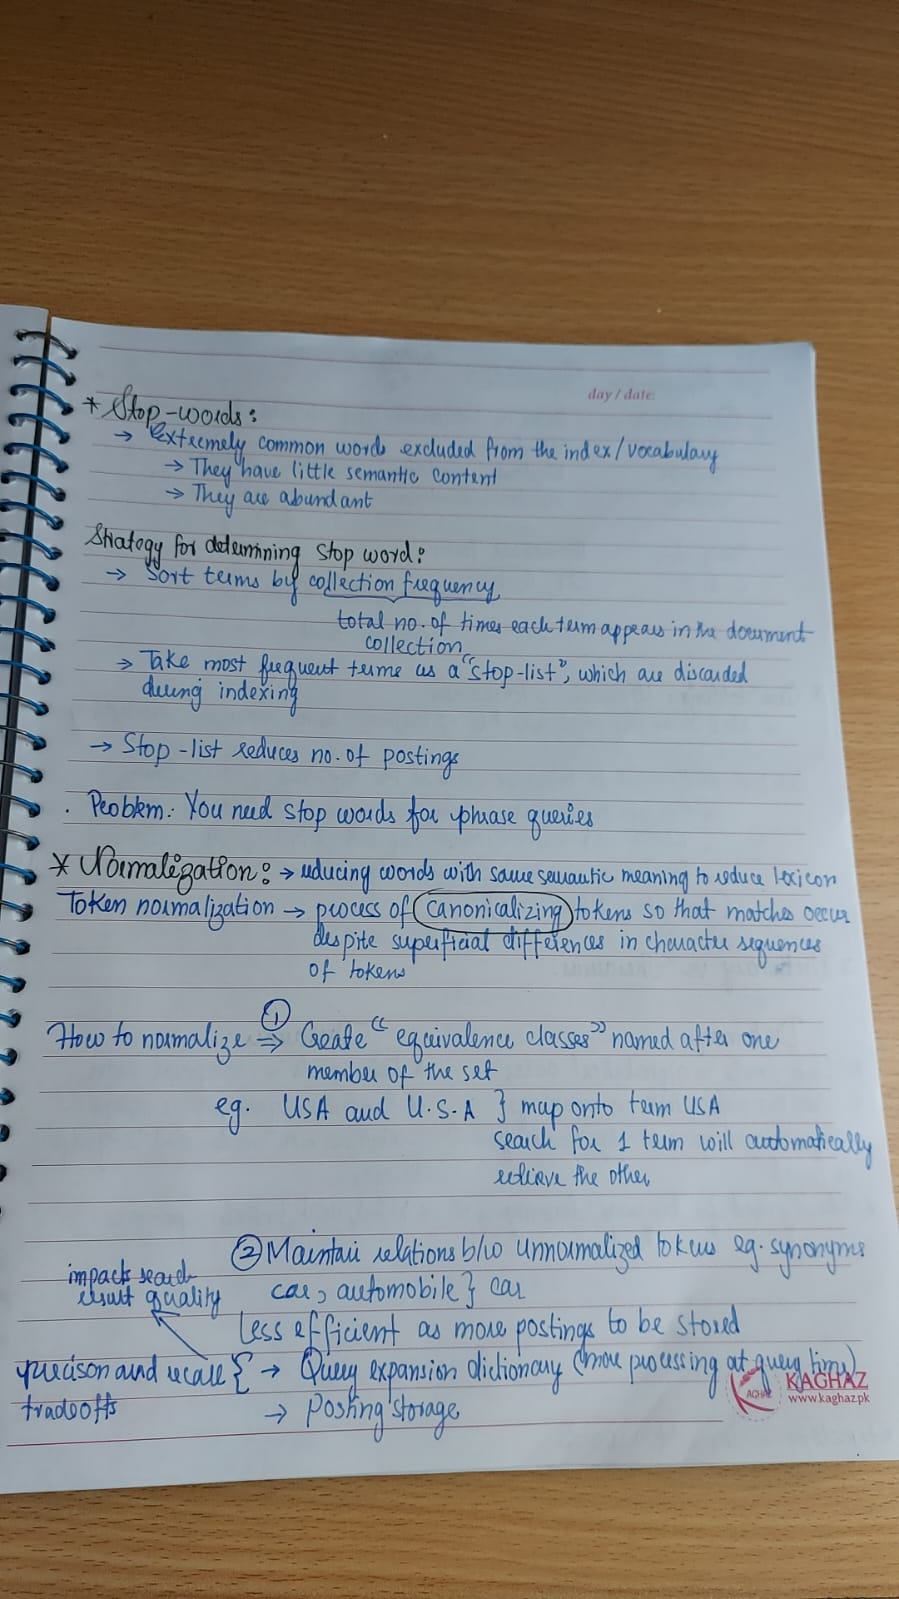 day / date:
* Stop-words:
→ Extremely common words excluded from the index/vocabulary
→ They have little semantic content
→ They are abundant
Strategy for determining stop word:
→ Sort terms by collection frequency
total no. of times each term appears in the document
collection
→ Take most frequent terms as a "stop-list", which are discarded
during indexing
→ Stop-list reduces no. of postings
. Problem: You need stop words for phrase queries
* Normalization: → reducing words with same semantic meaning to reduce lexicon
Token normalization → process of canonicalizing tokens so that matches occur
despite superficial differences in character sequences
of tokens
①
How to normalize ⇒ Create "equivalence classes" named after one
member of the set
eg. USA and U.S.A } map onto term USA
search for 1 term will automatically
retrieve the other
② Maintain relations b/w unnormalized tokens eg. synonyms
impacts search
result quality
car, automobile } car
Less efficient as more postings to be stored
precison and recall { → Query expansion dictionary (more processing at query time)
tradeoffs → Posting storage
KAGHAZ
KAGHAZ
www.kaghaz.pk